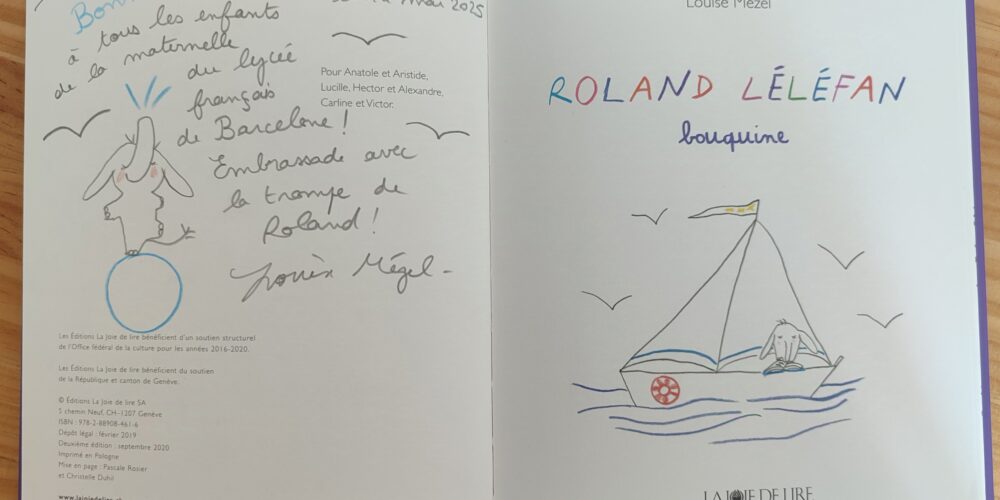 mai 2025
à tous les enfants
de la maternelle
du lycée
français
de Barcelone !
Embrassade avec
la trompe de
Roland !
Louise Mézel -
Pour Anatole et Aristide,
Lucille, Hector et Alexandre,
Carline et Victor.
Les Éditions La Joie de lire bénéficient d'un soutien structurel
de l'Office fédéral de la culture pour les années 2016-2020.
Les Éditions La Joie de lire bénéficient du soutien
de la République et canton de Genève.
© Éditions La Joie de lire SA
5 chemin Neuf, CH-1207 Genève
ISBN : 978-2-88908-461-6
Dépôt légal : février 2019
Deuxième édition : septembre 2020
Imprimé en Pologne
Mise en page : Pascale Rosier
et Christelle Duhil
Louise Mézel
ROLAND LÉLÉFAN
bouquine
LA JOIE DE LIRE